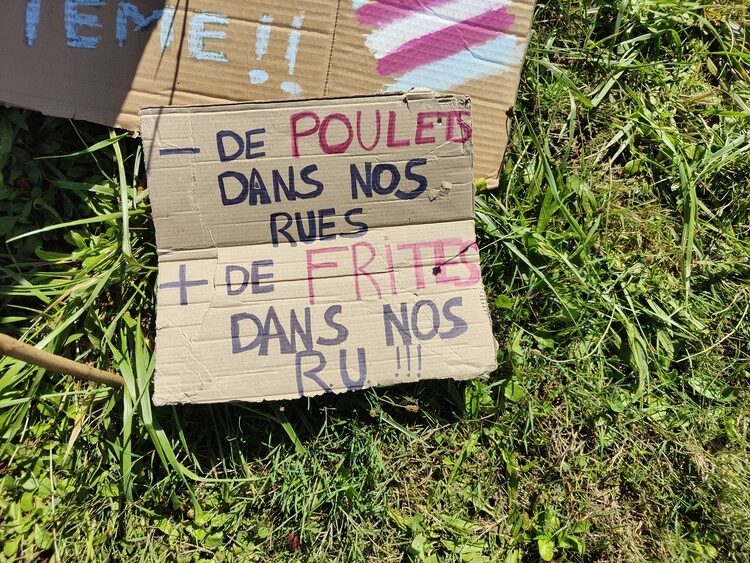 TEME !!
- DE POULETS
DANS NOS
RUES
+ DE FRITES
DANS NOS
R.U. !!!